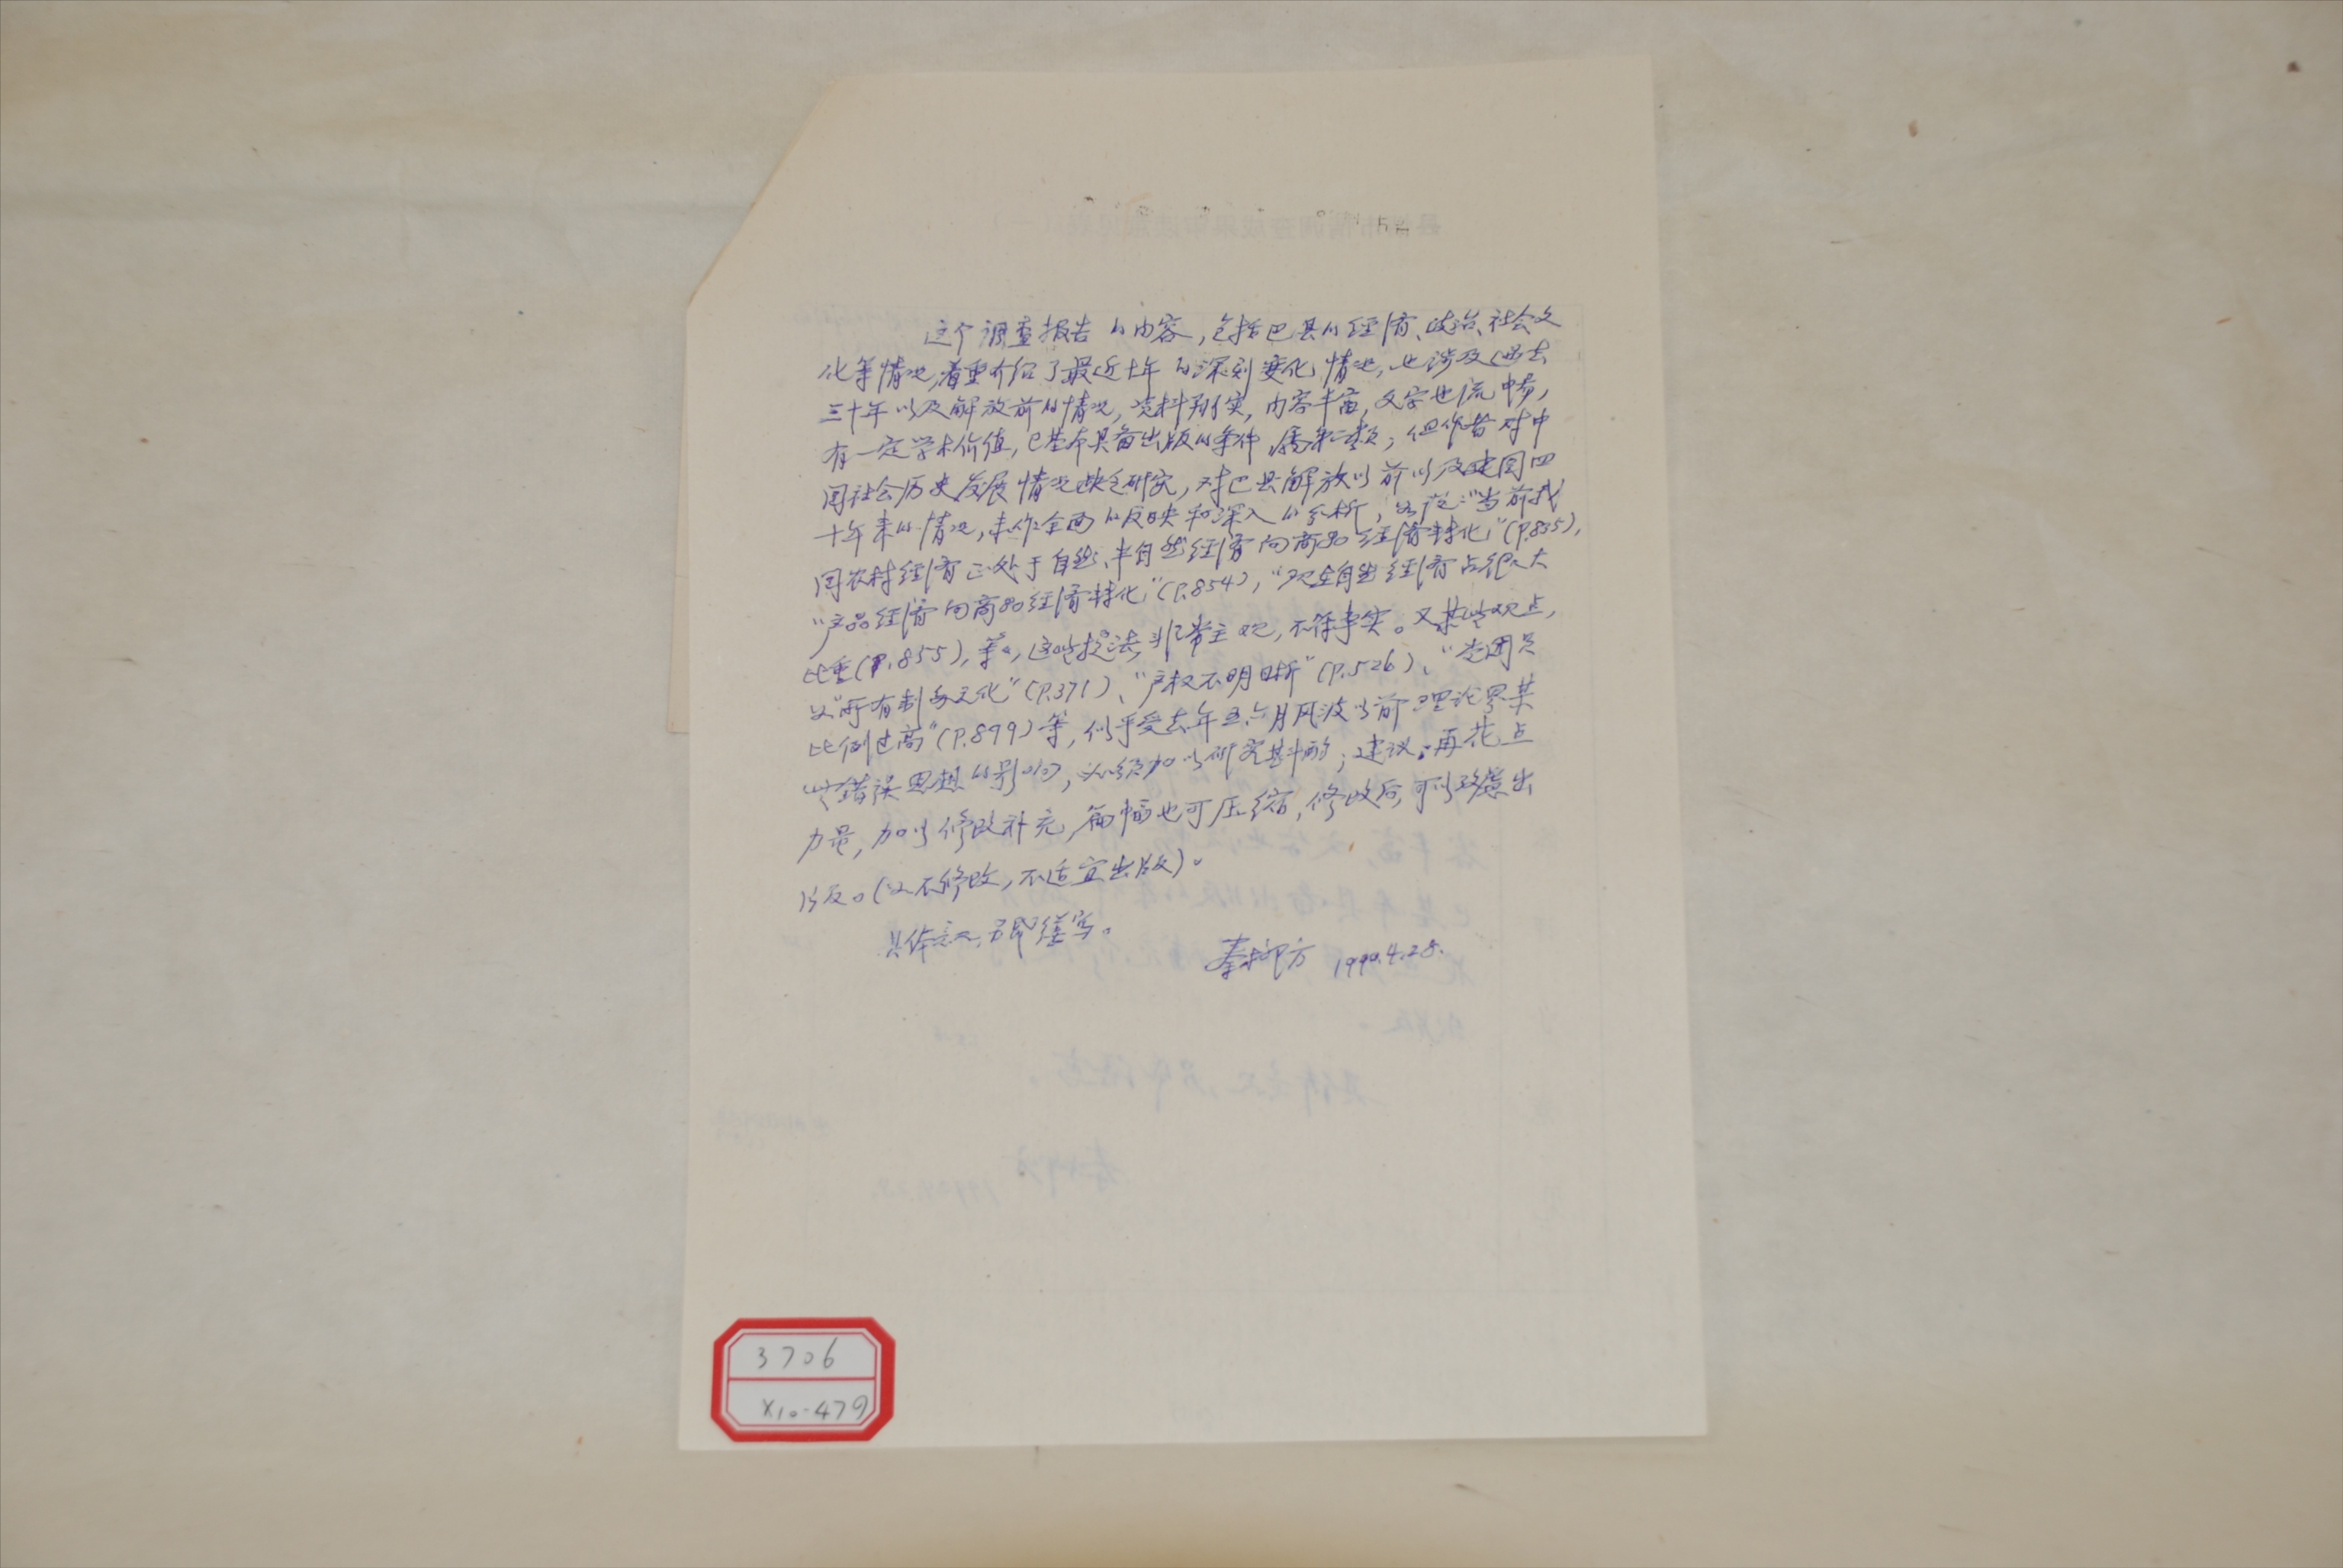 这个调查报告的内容,包括巴县的经济、政治、社会文
化等情况,着重介绍了最近十年的深刻变化情况,也涉及过去
三十年以及解放前的情况,资料翔实,内容丰富,文字也流畅,
有一定学术价值,已基本具备出版的条件,属第二类;但作者对中
国社会历史发展情况缺乏研究,对巴县解放以前以及建国四
十年来的情况,未作全面的反映和深入的分析,如说:"当前我
国农村经济正处于自然、半自然经济向商品经济转化"(P.835),
"产品经济向商品经济转化"(P.854),"现在自然经济占很大
比重(P.855),等,这些提法,非常主观,不符事实。又某些观点,
如"所有制多元化"(P.371)、"产权不明晰"(P.526)、"党团员
比例过高"(P.899)等,似乎受去年五六月风波以前理论界某
些错误思想的影响,必须加以研究斟酌;建议:再花点
力量,加以修改补充,篇幅也可压缩,修改后,可以考虑出
版。(如不修改,不适宜出版)。
具体意见,另即缮写。
秦柳方 1990.4.28.
3706
X10-479